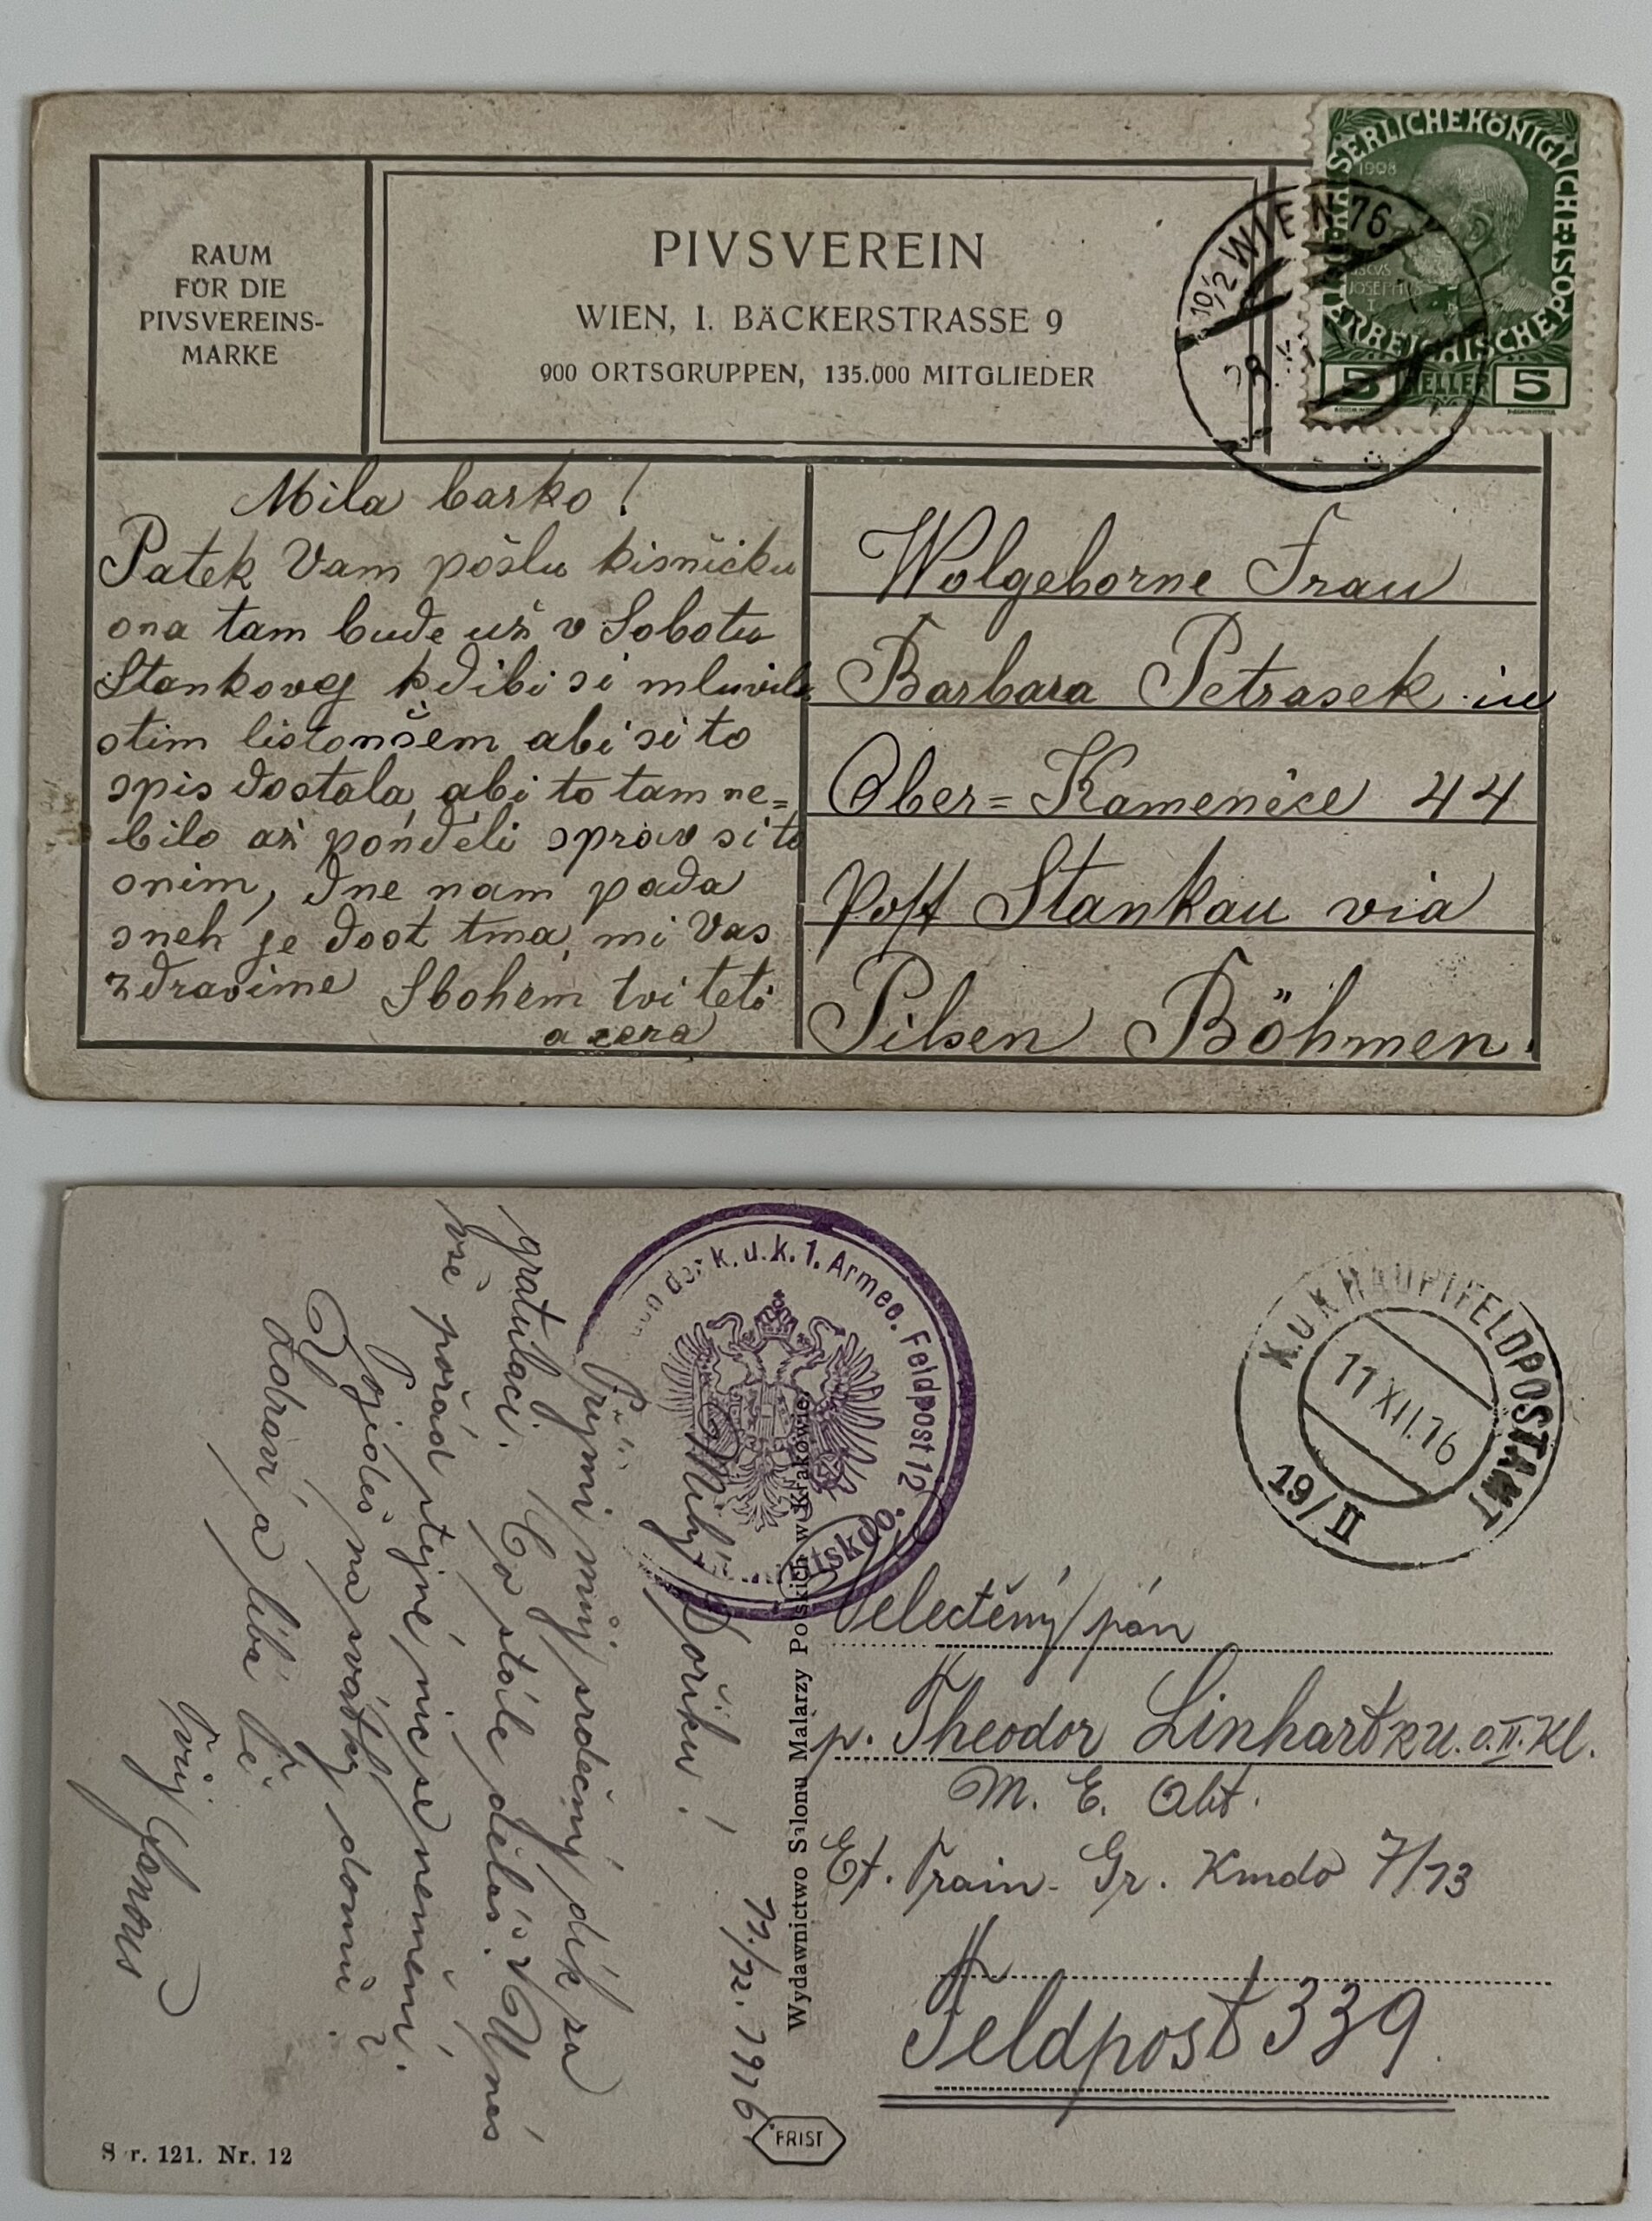 RAUM
FÜR DIE
PIVSVEREINS-
MARKE
PIVSVEREIN
WIEN, I. BÄCKERSTRASSE 9
900 ORTSGRUPPEN, 135.000 MITGLIEDER
KAISERLICHE KÖNIGLICHE ÖSTERREICHISCHE POST
1908
5 HELLER 5
WIEN 76
Mila barko!
Patek Vam pošlu kisničku
ona tam bude už v Sobotu
Stankovej kdibi si mluvila
otim listonošem abi si to
spis dostala abi to tam ne=
bilo až pónděli sprav si to
onim, dne nam pada
sneh je dost tma, mi Vas
zdravime Sbohem tvi teti
a
Wolgeborne Frau
Barbara Petrasek in
Ober= Kamenice 44
Post Stankau via
Pilsen Böhmen.
der k.u.k. 1. Armee. Feldpost 12
K.U.K. HAUPTFELDPOSTAMT
11 XII.16
19/II
11./12. 1916.
Milý Doříku!
Přijmi můj srdečný dík za
gratulaci. Co stále děláš? U nás
vše pořád stejné, nic se nemění.
Pojedeš na svátky domů?
Zdraví a líbá Tě
Tvůj
Wydawnictwo Salonu Malarzy Polskich w Krakowie.
Velectěný pán
p. Theodor Linhart
M. E. Abt.
Et. Train- Gr. Kmdo 7/13
Feldpost 339.
FRIST
Ser. 121. Nr. 12